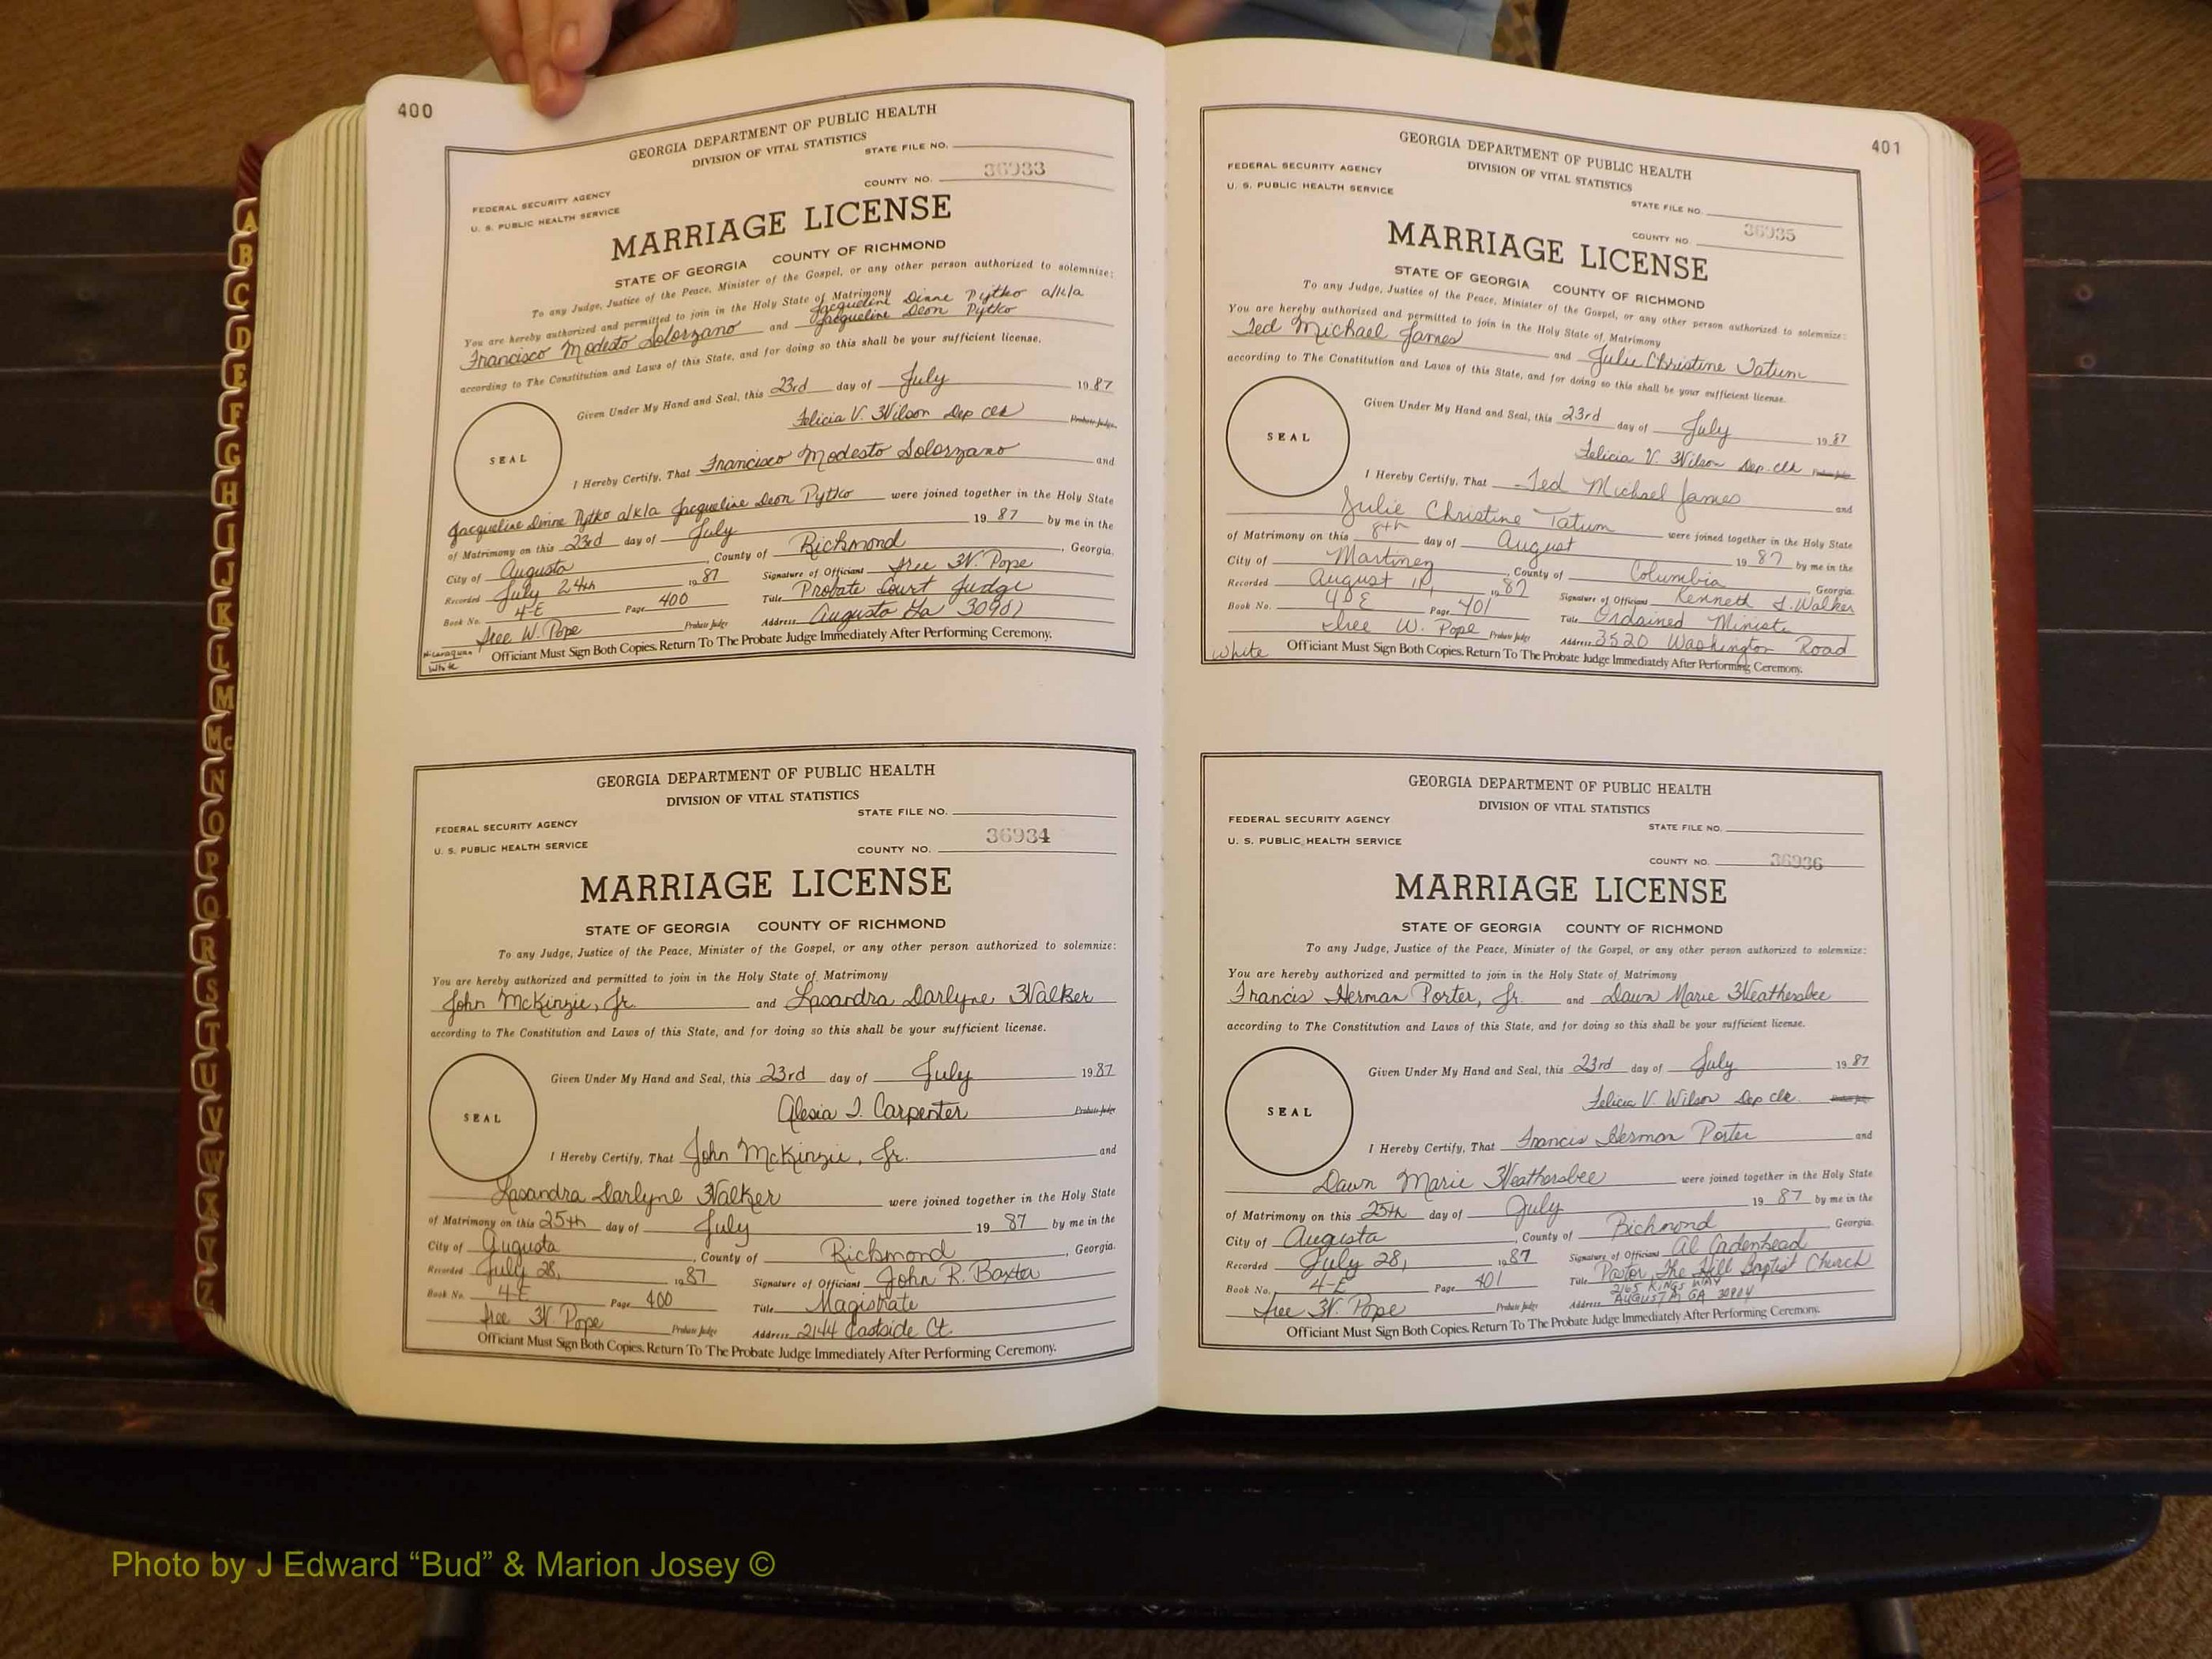 400
GEORGIA DEPARTMENT OF PUBLIC HEALTH
DIVISION OF VITAL STATISTICS
STATE FILE NO.
FEDERAL SECURITY AGENCY
U. S. PUBLIC HEALTH SERVICE
COUNTY NO. 36933
MARRIAGE LICENSE
STATE OF GEORGIA COUNTY OF RICHMOND
To any Judge, Justice of the Peace, Minister of the Gospel, or any other person authorized to solemnize:
You are hereby authorized and permitted to join in the Holy State of Matrimony
Jacqueline Dinne Pytko a/k/a
Francisco Modesto Solorzano and Jacqueline Deon Pytko
according to The Constitution and Laws of this State, and for doing so this shall be your sufficient license.
Given Under My Hand and Seal, this 23rd day of July 1987
Felicia V. Wilson Dep Clk Probate Judge
SEAL
I Hereby Certify, That Francisco Modesto Solorzano and
Jacqueline Dinne Pytko a/k/a Jacqueline Deon Pytko were joined together in the Holy State
of Matrimony on this 23rd day of July 1987 by me in the
City of Augusta, County of Richmond, Georgia.
Recorded July 24th 1987 Signature of Officiant W. Pope
Book No. 4-E Page 400 Title Probate Court Judge
W. Pope Probate Judge Address Augusta Ga
Nicaraguan
White
Officiant Must Sign Both Copies. Return To The Probate Judge Immediately After Performing Ceremony.
GEORGIA DEPARTMENT OF PUBLIC HEALTH
DIVISION OF VITAL STATISTICS
STATE FILE NO.
FEDERAL SECURITY AGENCY
U. S. PUBLIC HEALTH SERVICE
COUNTY NO. 36934
MARRIAGE LICENSE
STATE OF GEORGIA COUNTY OF RICHMOND
To any Judge, Justice of the Peace, Minister of the Gospel, or any other person authorized to solemnize:
You are hereby authorized and permitted to join in the Holy State of Matrimony
John McKinzie, Jr. and Lasandra Darlyne Walker
according to The Constitution and Laws of this State, and for doing so this shall be your sufficient license.
Given Under My Hand and Seal, this 23rd day of July 1987
Alesia J. Carpenter Probate Judge
SEAL
I Hereby Certify, That John McKinzie, Jr. and
Lasandra Darlyne Walker were joined together in the Holy State
of Matrimony on this 25th day of July 1987 by me in the
City of Augusta, County of Richmond, Georgia.
Recorded July 28, 1987 Signature of Officiant John R. Baxter
Book No. 4-E Page 400 Title Magistrate
W. Pope Probate Judge Address 2144 Eastside Ct.
Officiant Must Sign Both Copies. Return To The Probate Judge Immediately After Performing Ceremony.
401
GEORGIA DEPARTMENT OF PUBLIC HEALTH
DIVISION OF VITAL STATISTICS
FEDERAL SECURITY AGENCY
U. S. PUBLIC HEALTH SERVICE
STATE FILE NO.
COUNTY NO. 36935
MARRIAGE LICENSE
STATE OF GEORGIA COUNTY OF RICHMOND
To any Judge, Justice of the Peace, Minister of the Gospel, or any other person authorized to solemnize:
You are hereby authorized and permitted to join in the Holy State of Matrimony
Ted Michael James and Julie Christine Tatum
according to The Constitution and Laws of this State, and for doing so this shall be your sufficient license.
Given Under My Hand and Seal, this 23rd day of July 1987
Felicia V. Wilson Dep. Clk Probate Judge
SEAL
I Hereby Certify, That Ted Michael James and
Julie Christine Tatum were joined together in the Holy State
of Matrimony on this 8th day of August 1987 by me in the
City of Martinez, County of Columbia Georgia.
Recorded August 11, 1987 Signature of Officiant Kenneth L. Walker
Book No. 4-E Page 401 Title Ordained Ministe
W. Pope Probate Judge Address 3520 Washington Road
White
Officiant Must Sign Both Copies. Return To The Probate Judge Immediately After Performing Ceremony.
GEORGIA DEPARTMENT OF PUBLIC HEALTH
DIVISION OF VITAL STATISTICS
FEDERAL SECURITY AGENCY
STATE FILE NO.
U. S. PUBLIC HEALTH SERVICE
COUNTY NO. 36936
MARRIAGE LICENSE
STATE OF GEORGIA COUNTY OF RICHMOND
To any Judge, Justice of the Peace, Minister of the Gospel, or any other person authorized to solemnize:
You are hereby authorized and permitted to join in the Holy State of Matrimony
Francis Herman Porter, Jr. and Dawn Marie Weathersbee
according to The Constitution and Laws of this State, and for doing so this shall be your sufficient license.
Given Under My Hand and Seal, this 23rd day of July 1987
Felicia V. Wilson Dep Clk. Probate Judge
SEAL
I Hereby Certify, That Francis Herman Porter and
Dawn Marie Weathersbee were joined together in the Holy State
of Matrimony on this 25th day of July 1987 by me in the
City of Augusta, County of Richmond, Georgia.
Recorded July 28, 1987 Signature of Officiant Al Cadenhead
Book No. 4-E Page 401 Title Pastor, The Hill Baptist Church
W. Pope Probate Judge Address 2165 KINGS WAY
AUGUSTA, GA 30904
Officiant Must Sign Both Copies. Return To The Probate Judge Immediately After Performing Ceremony.
A
B
C
D
E
F
G
H
I
J
K
L
M
Mc
N
O
P
Q
R
S
T
U
V
W
X
Y
Z
Photo by J Edward “Bud” & Marion Josey ©